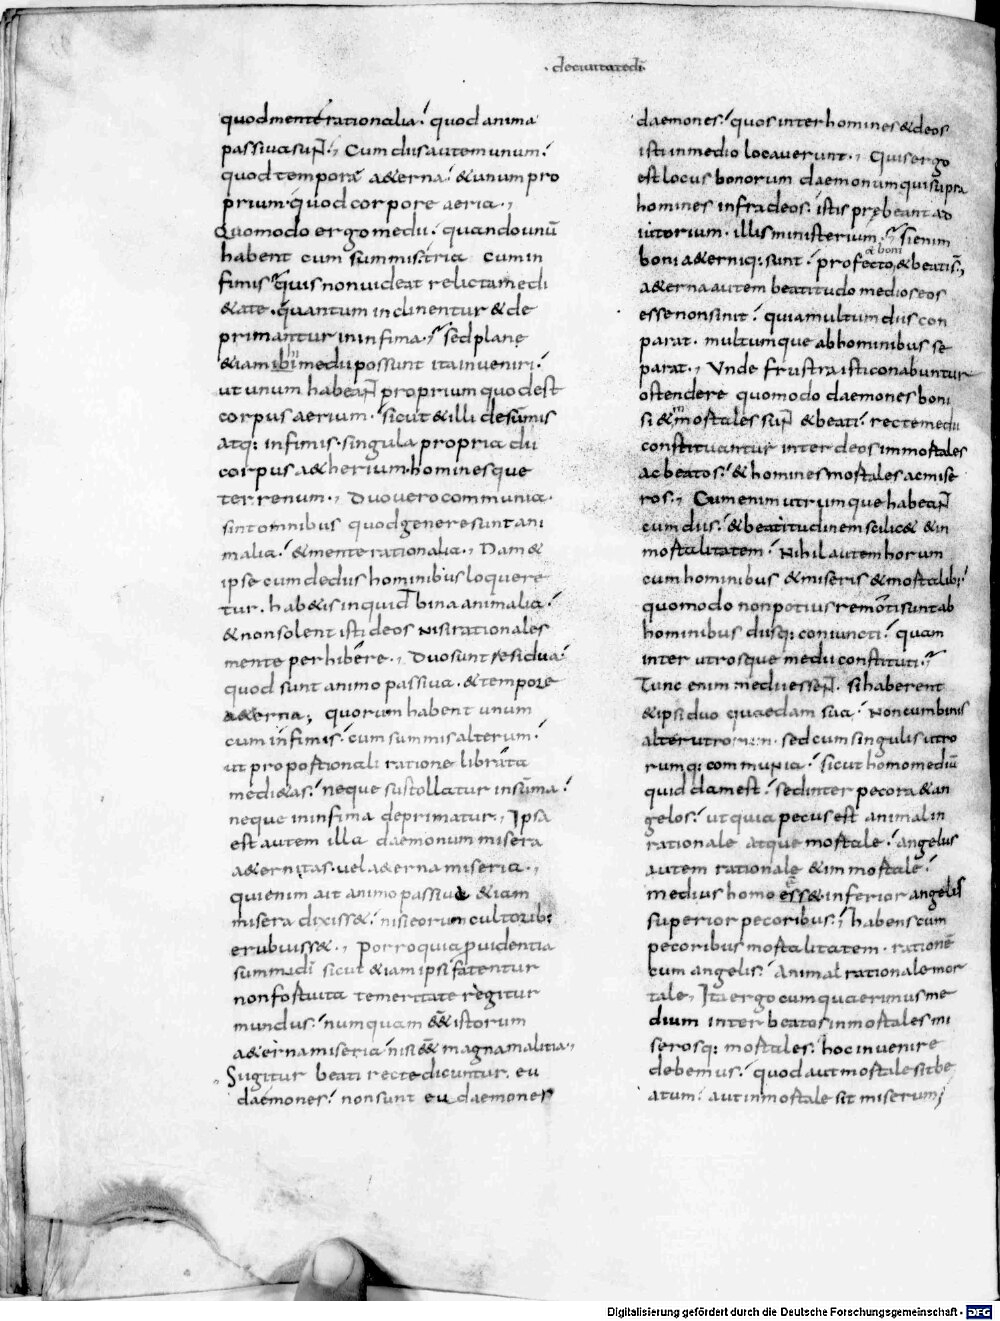 · decivitatedī
quodmente rationalia⸵ quod anima
passiva sunt⸵, Cum dis autem unum⸵
quod tempora aeterna⸵ & unum pro
prium· quod corpore aeria·,
Quomodo ergo medii⸵ quando unū
habent cum summis· tria cum in
fimis· quis non videat relicta medi
&ate· quantum inclinentur & de
primantur in infima⸵ sed plane
&iam ibi medii possunt ita inveniri⸵
ut unum habeant proprium quod est
corpus aerium· sicut & illi de sūmis
atq: infimis· singula propria dii
corpus a&herium· hominesque
terrenum·, Duo vero communia·
sint omnibus quod genere sunt ani
malia⸵ & mente rationalia·, Nam &
ipse cum de diis hominibus loquere
tur· hab&is inquid bina animalia⸵
& non solent isti deos nisi rationales
mente perhibere·, Duo sunt residua⸵
quod sunt animo passiva· & tempore
a&erna; quorum habent unum
cum infimis⸵ cum summis alterum⸵
ut proportionali ratione librata
medi&as⸵ neque sustollatur in sūma⸵
neque in infima deprimatur·, Ipsa
est autem illa daemonum misera
a&ernitas· vel a&erna miseria·,
qui enim ait animo passiva & iam
misera dixiss&⸵ nisi eorum cultorib:
erubuiss&·, Porro quia pvidentia
summi dī sicut &iam ipsi fatentur
non fortuita temeritate regitur
mundus⸵ numquam eēt istorum
a&erna miseria nisi eēt magna malitia·,
Si igitur beati recte dicuntur· eu
daemones⸵ non sunt eu daemones
daemones⸵ quos inter homines & deos
isti in medio locaverunt·, Quis ergo
est locus bonorum daemonum qui supra
homines infra deos· istis prębeant ad
iutorium· illis ministerium⸵ si enim
& boni
boni a&erniq: sunt⸵ profecto & beati s̄·,
a&erna autem beatitudo medios eos
esse non sinit⸵ quia multum dis con
parat· multumque ab hominibus se
parat·, Unde frustra isti conabuntur
ostendere quomodo daemones boni
si & inmortales sunt & beati⸵ recte medii
constituantur inter deos immortales
ac beatos⸵ & homines mortales ac mise
ros·, Cum enim utrumque habeant
cum diis⸵ & beatitudinem scilic& & in
mortalitatem⸵ Nihil autem horum
cum hominibus & miseris & mortalib:
quomodo non potius remoti sunt ab
hominibus diisq: coniuncti⸵ quam
inter utrosque medii constituti⸵
Tunc enim medii essent· si haberent
& ipsi duo quaedam sua⸵ Non cum binis
alterutrorum· sed cum singulis utro
rumq: communia⸵ sicut homo medium
quiddam est⸵ sed inter pecora & an
gelos⸵ ut quia pecus est animal in
rationale atque mortale⸵ angelus
autem rationale & immortale⸵
medius homo ess& inferior angelis
superior pecoribus⸵ habens cum
pecoribus mortalitatem· rationē
cum angelis⸵ Animal rationale mor
tale·, Ita ergo cum quaerimus me
dium inter beatos inmortales mi
serosq: mortales⸵ hoc invenire
debemus⸵ quod aut mortale sit be
atum⸵ aut inmortale sit miserum;
Digitalisierung gefördert durch die Deutsche Forschungsgemeinschaft - DFG